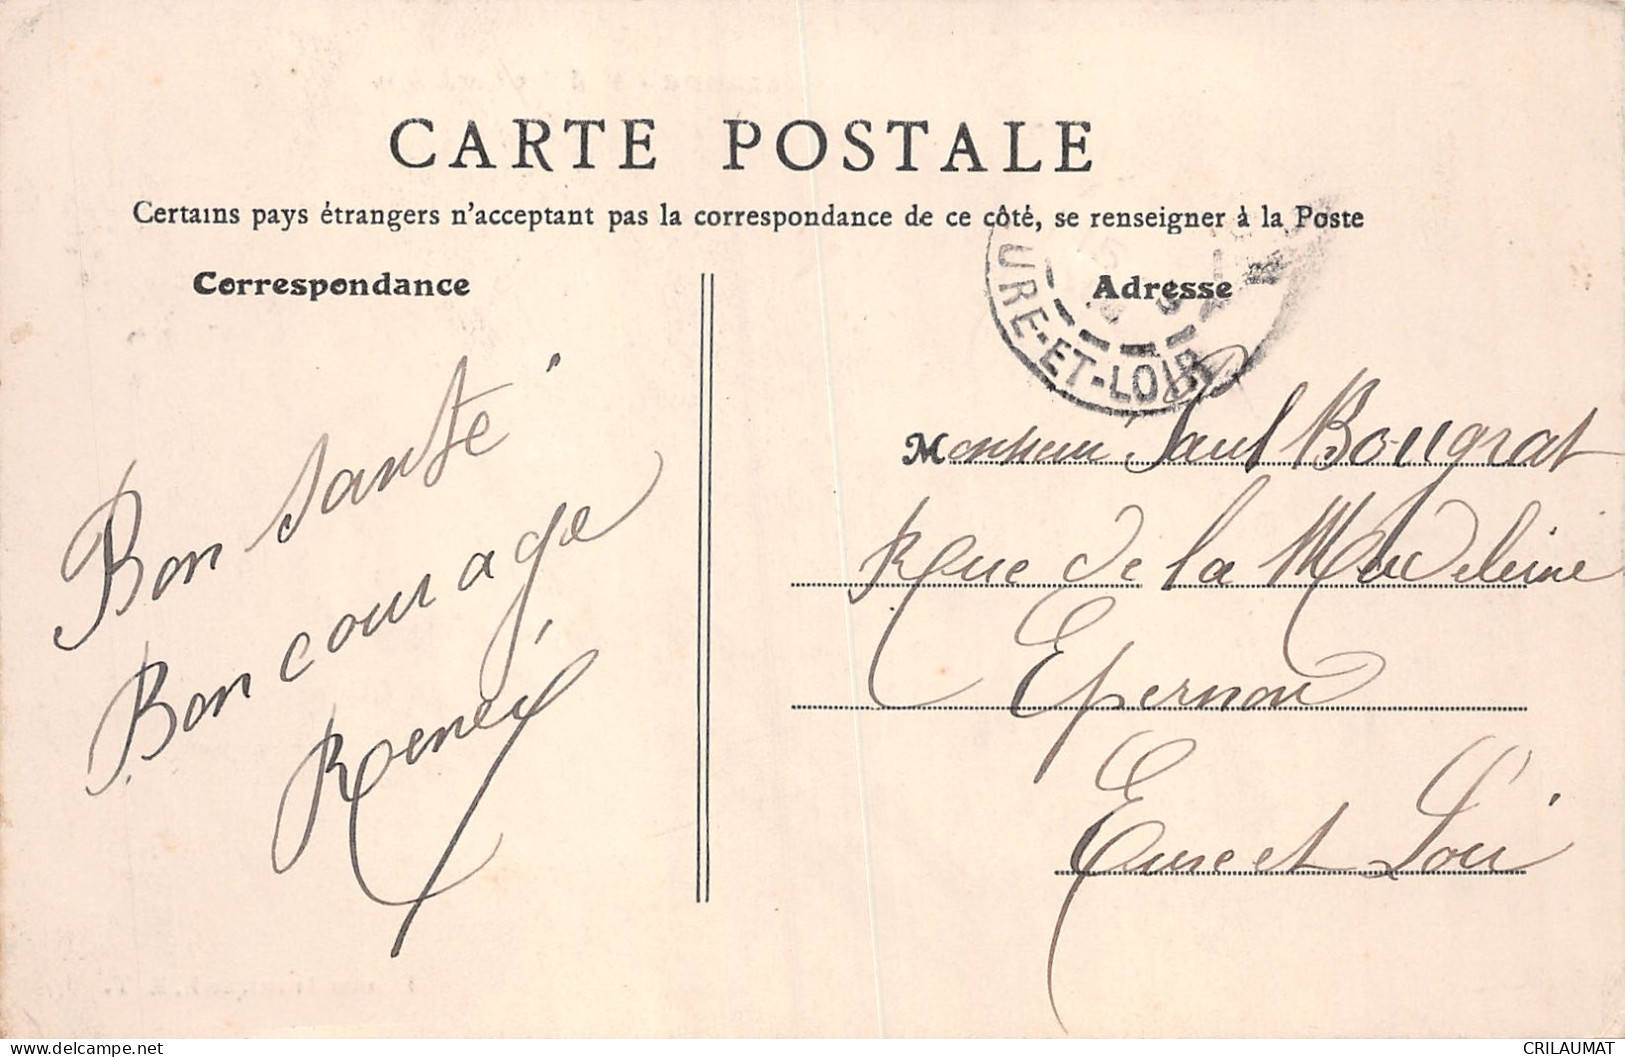 CARTE POSTALE
Certains pays étrangers n'acceptent pas la correspondance de ce côté, se renseigner à la Poste
Correspondance
Adresse
URE-ET-LOIR
Bon santé
Bon courage
René
Monsieur Paul Bougrat
Rue de la Madeleine
Epernon
Eure et Loir
delcampe.net
CRILAUMAT